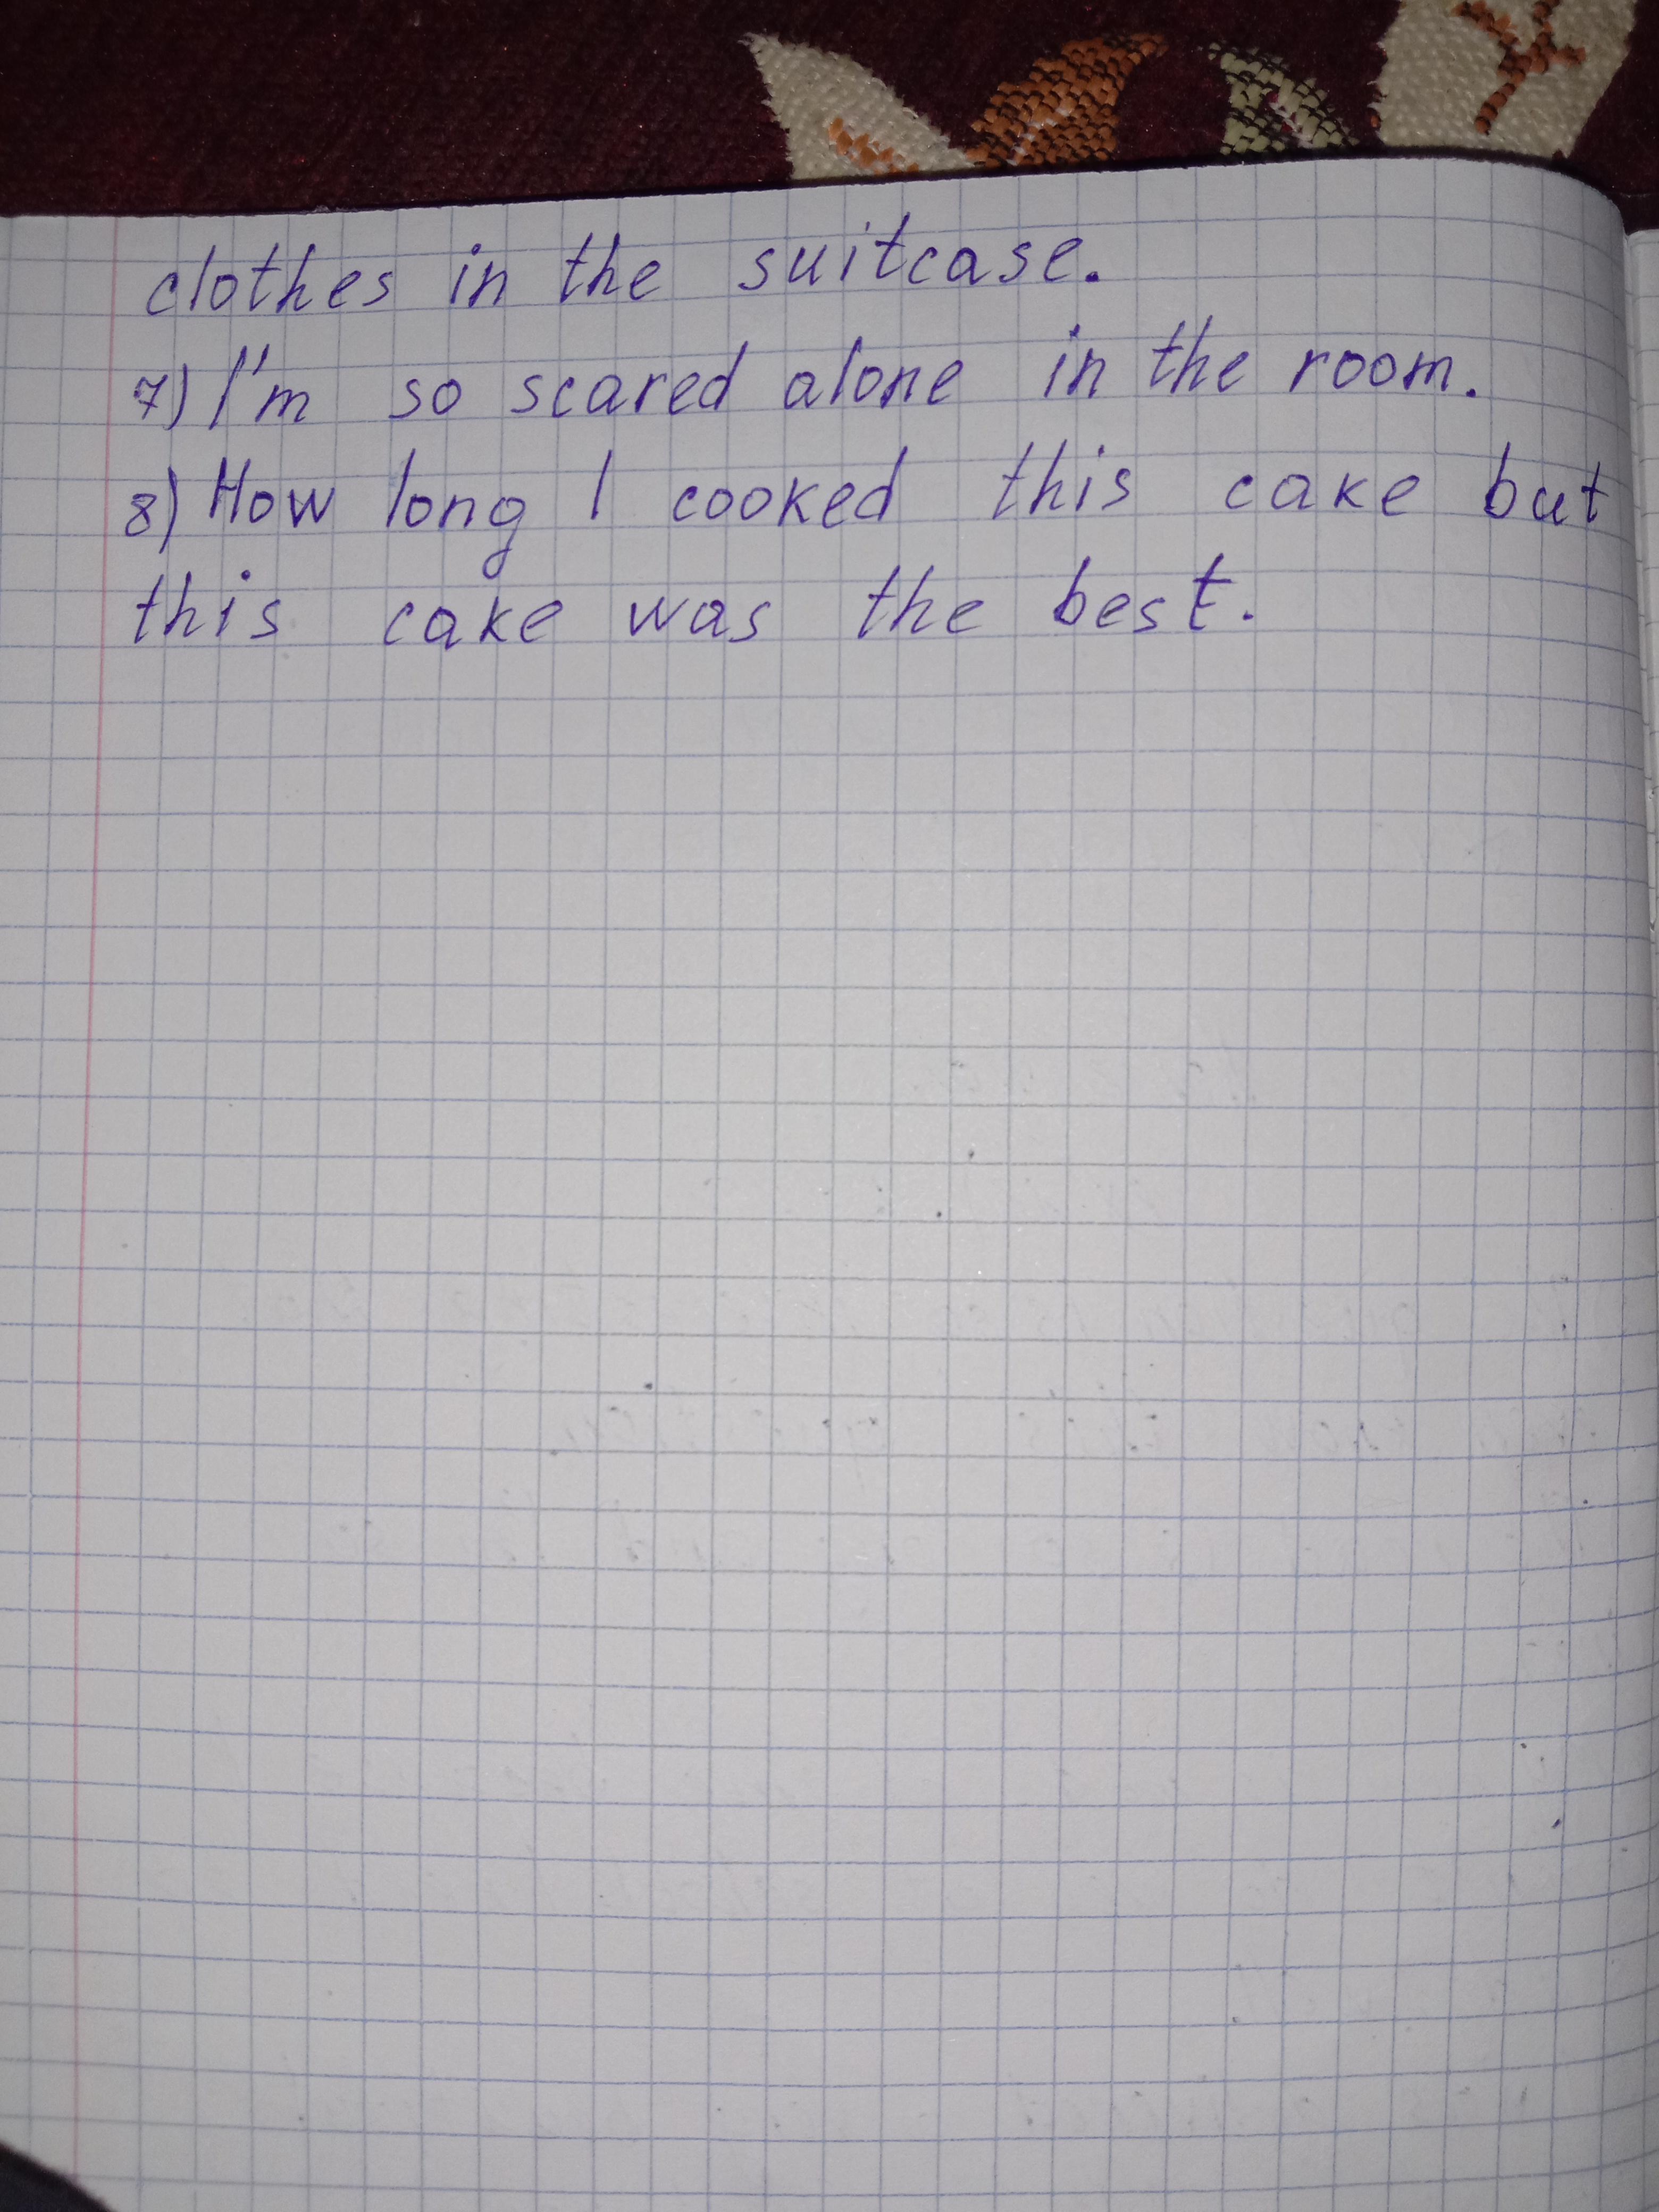 clothes in the suitcase.
7) I'm so scared alone in the room.
8) How long I cooked this cake but
this cake was the best.